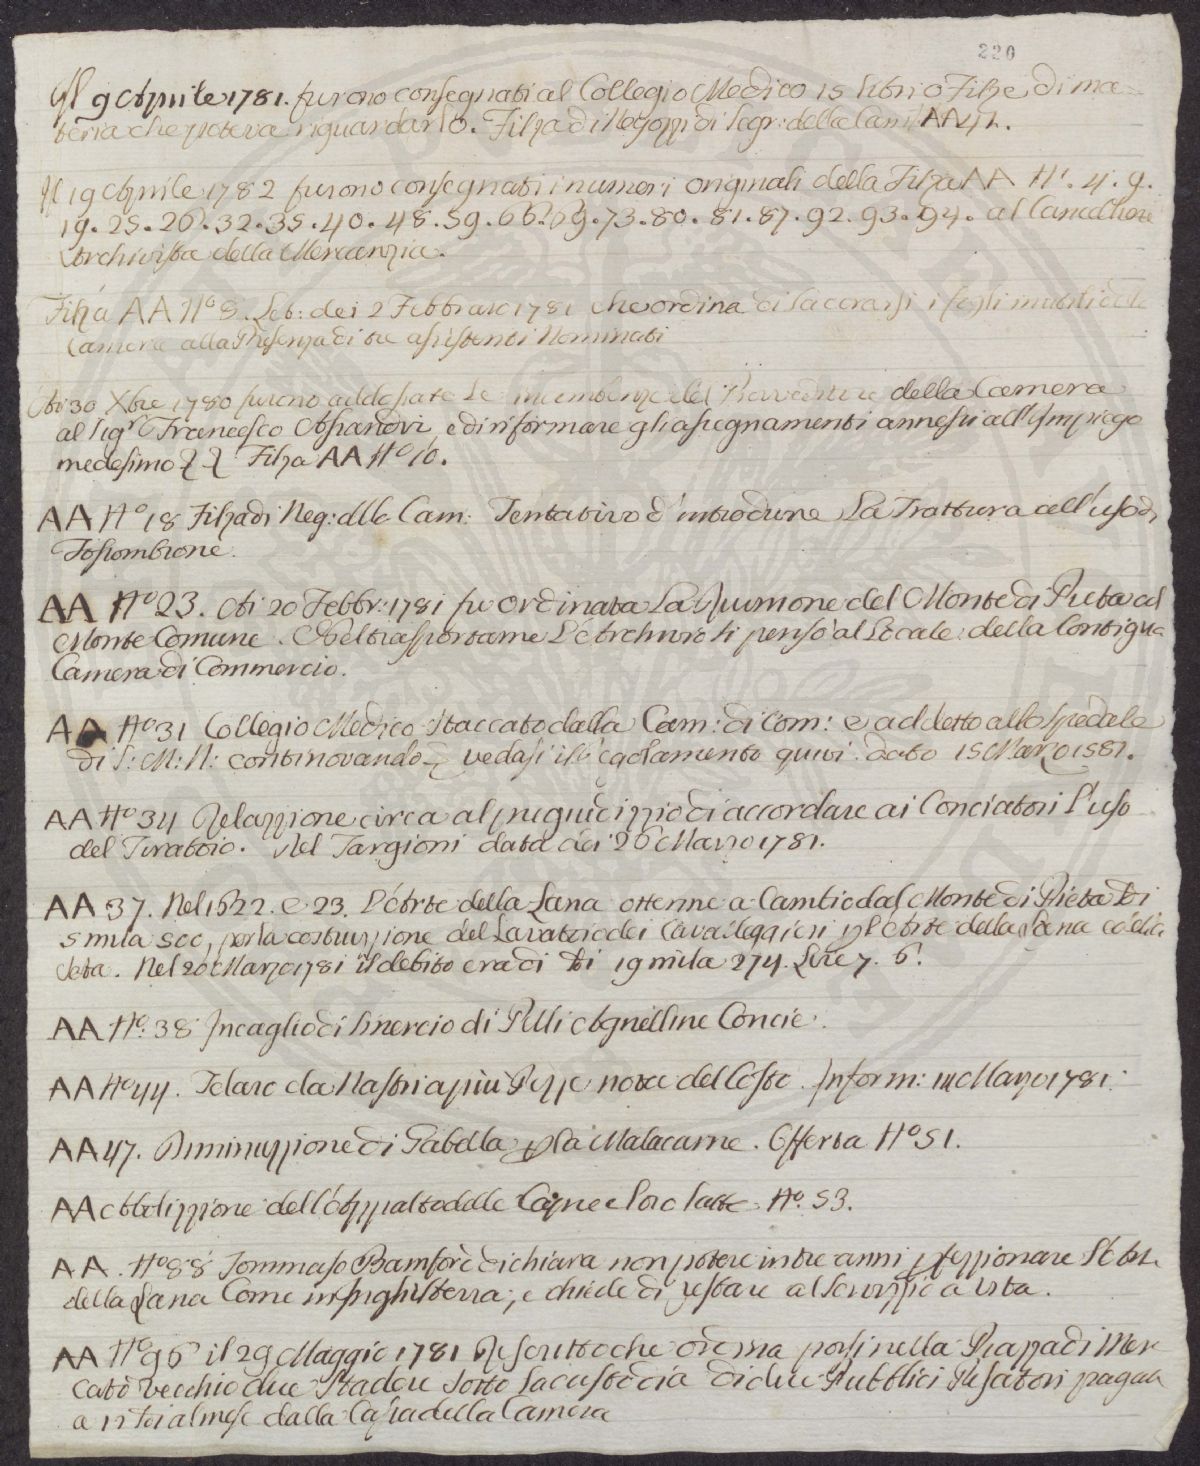 220
Il 9 Aprile 1781. furono consegnati al Collegio Medico 15 libri o Filze di ma=
teria che poteva riguardarlo. Filza di Negozzi di Segr: della Cam: AA 42.
Il 19 Aprile 1782 furono consegnati i numeri originali della Filza AA N°. 4. 9.
19. 25. 26. 32. 35. 40. 48. 59. 66. 69. 73. 80. 81. 87. 92. 93. 94. al Cancelliere
Archivista della Mercanzia.
Filza AA N° 8. Let: dei 2 Febbraio 1781 che ordina di lacerarsi i fogli inutili della
Camera alla Presenza di tre assistenti Nominati
A di 30 Xbre 1780 furono addossate le incumbenze del Provveditore della Camera
al Sigr Francesco, e di riformare gli assegnamenti annessi all'Impiego
medesimo Filza AA N° 10.
AA N° 18 Filza di Neg: della Cam: Tentativo d'introdurre la Trattura all'uso di
Fossombrone.
AA N° 23. A di 20 Febbr: 1781 fu ordinata la Riunione del Monte di Pieta al
Monte Comune. Nel trasportarne l'Archivio si pensò al Locale della Contigua
Camera di Commercio.
AA N° 31 Collegio Medico staccato dalla Cam: di Com: e addetto allo spedale
di S: M: N: continovando vedasi il regolamento quivi. dato 15 Marzo 1581.
AA N° 34 Relazzione circa al pregiudizzio di accordare ai Conciatori l'uso
del Tiratoio. Del Targioni data dei 26 Marzo 1781.
AA 37. Nel 1622. e 23. l'Arte della Lana ottenne a Cambio dal Monte di Pieta
5 mila 500, per la costruzzione del Lavatoio dei Cavalleggieri p l'Arte della Lana
Seta. Nel 20 Marzo 1781 il debito era di 19 mila 274. Lire 7. 6.
AA N°. 38 Incaglio di smercio di Pelli Agnelline Concie.
AA N° 44. Telaro da Nastri a più Pezze nota del Costo. Inform: 14 Marzo 1781.
AA 47. Diminuzzione di Gabella p la Malacarne. Offerta N° 51.
AA Abolizzione dell'Appalto delle Capne e loro latte N°. 53.
AA. N° 88 Tommaso Bamford dichiara non potere in tre anni pfezzionare l'Arte
della Lana Come in Inghilterra, e chiede di restare al Servizzio a vita.
AA N° 96 il 29 Maggio 1781 Rescritto che ordina porsi nella Piazza di Mer=
cato vecchio due Stadere sotto la custodia di due Pubblici Pesatori pagati
a al mese dalla Cassa della Camera